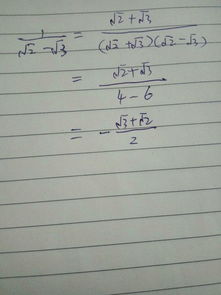 1/(√2 -√3) = (√2 + √3)/((√2 +√3)(√2 -√3))
= (√2+√3)/(4 - 6)
= - (√3+√2)/2